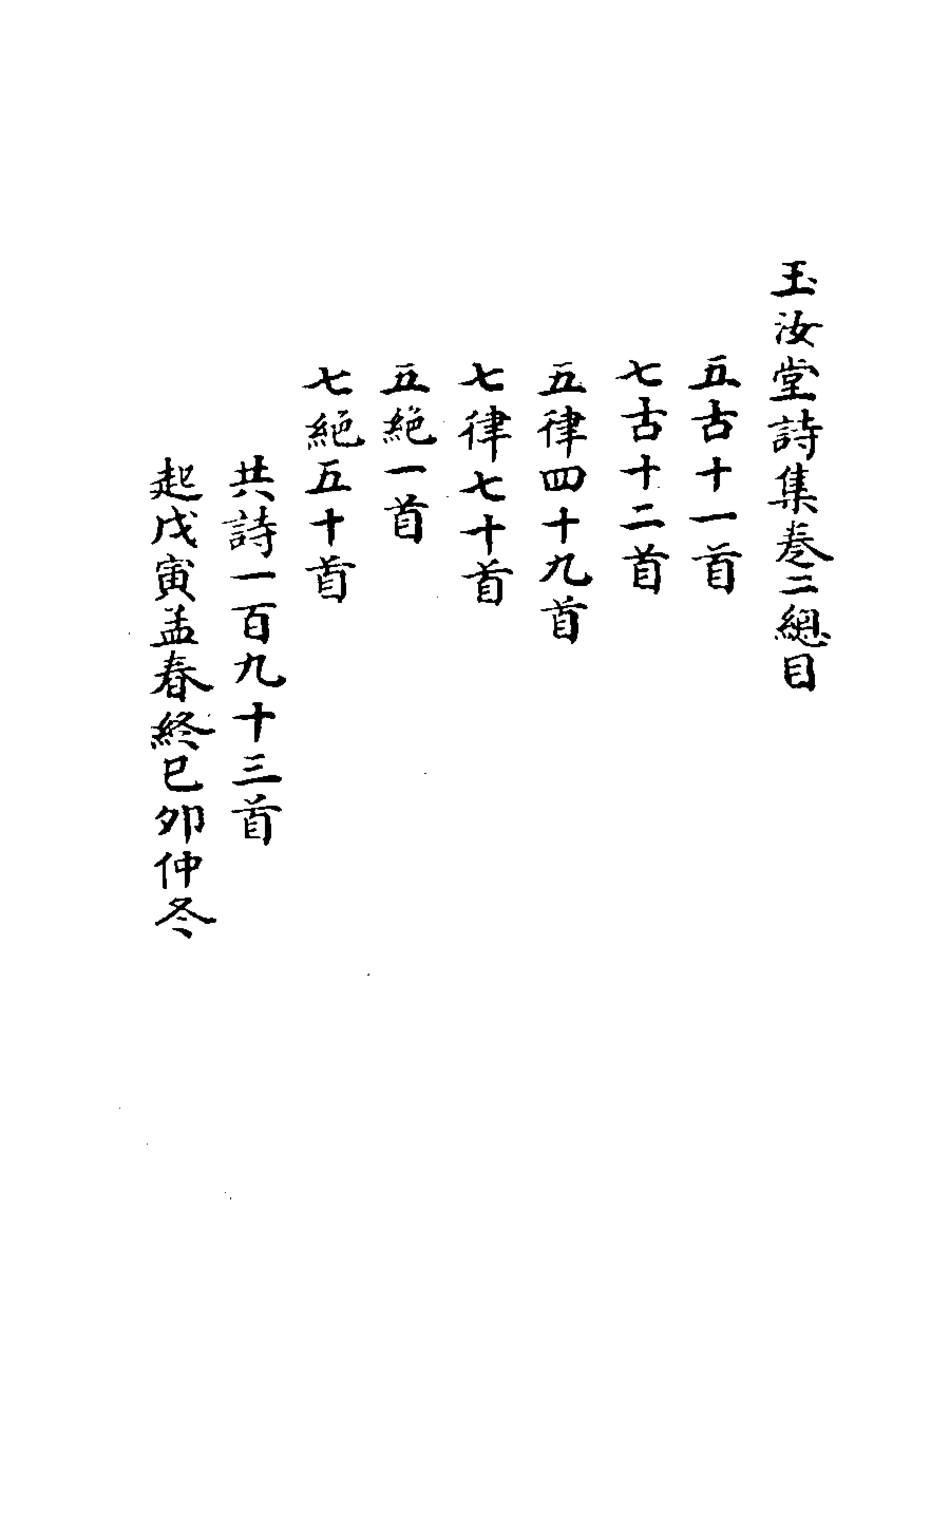 玉汝堂詩集卷二總目
五古十一首
七古十二首
五律四十九首
七律七十首
五絕一首
七絕五十首
共詩一百九十三首
起戊寅孟春終已卯仲冬